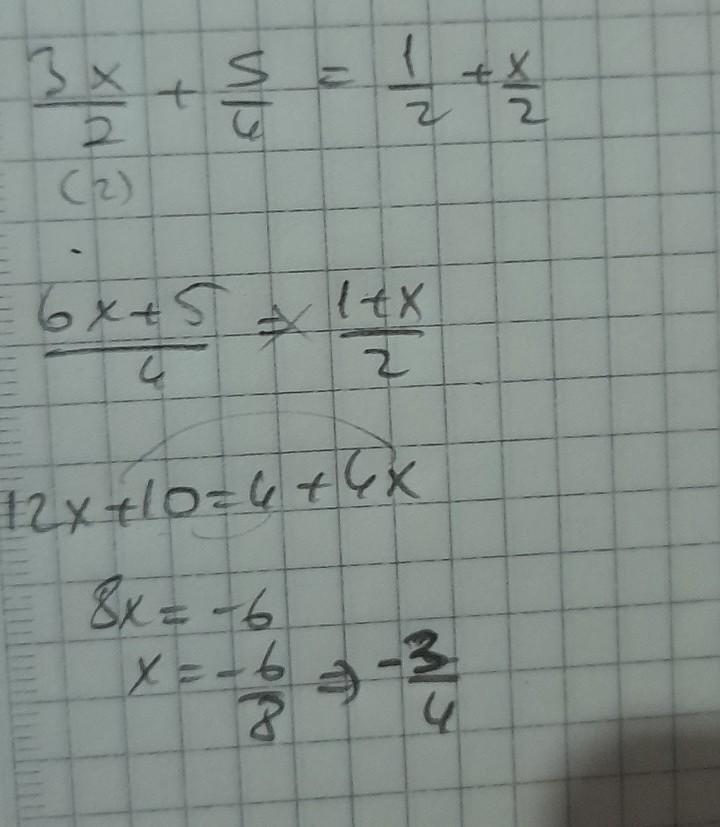 3x/2 + 5/4 = 1/2 + x/2
(2)
6x+5/4 = 1+x/2
12x+10=4+4x
8x=-6
x=-6/8 ⇒ -3/4